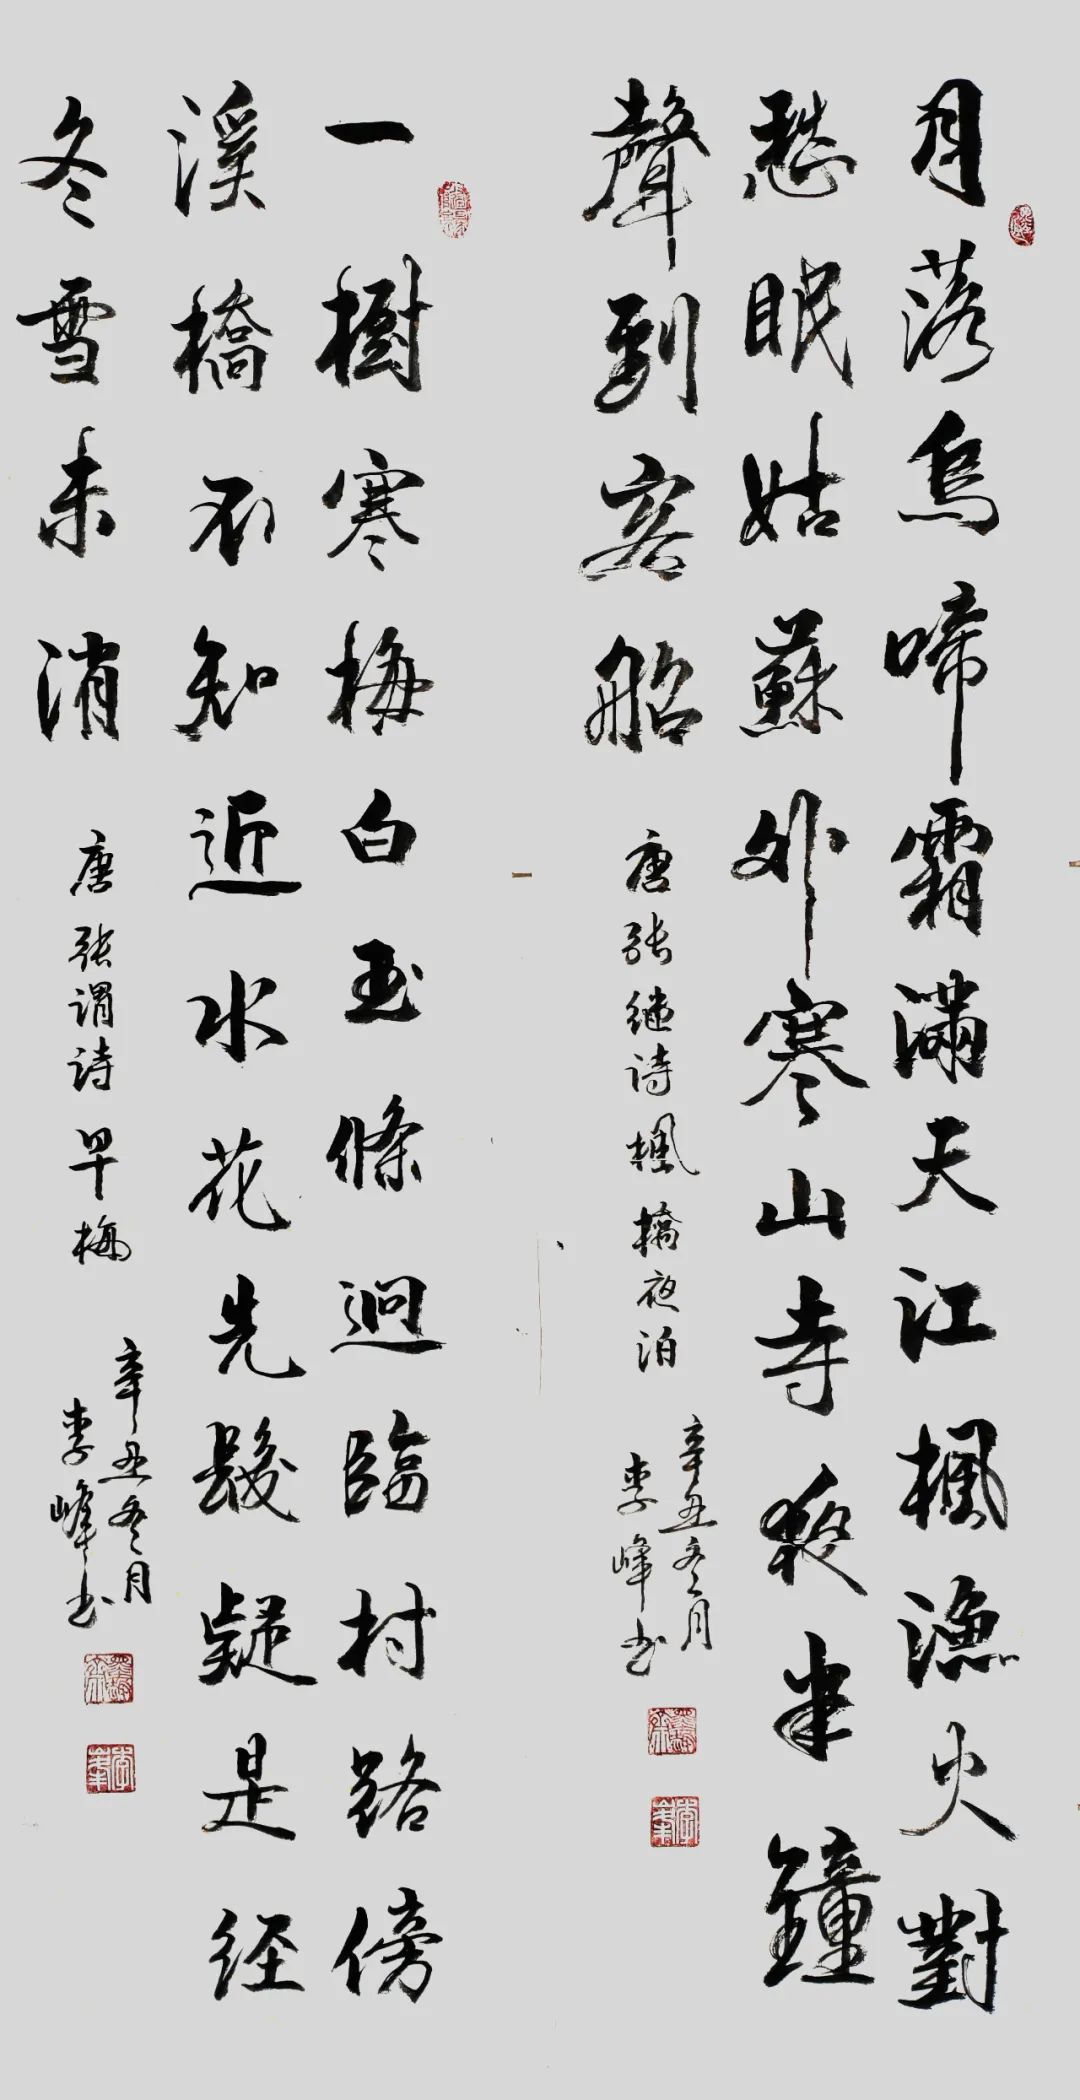 月落烏啼霜滿天江楓漁火對
愁眠姑蘇外寒山寺夜半鐘
聲到客船
唐張继诗楓橋夜泊
辛丑冬月
李峰书
一樹寒梅白玉條迥臨村路傍
溪橋不知近水花先發疑是经
冬雪未消
唐張谓诗早梅
辛丑冬月
李峰书